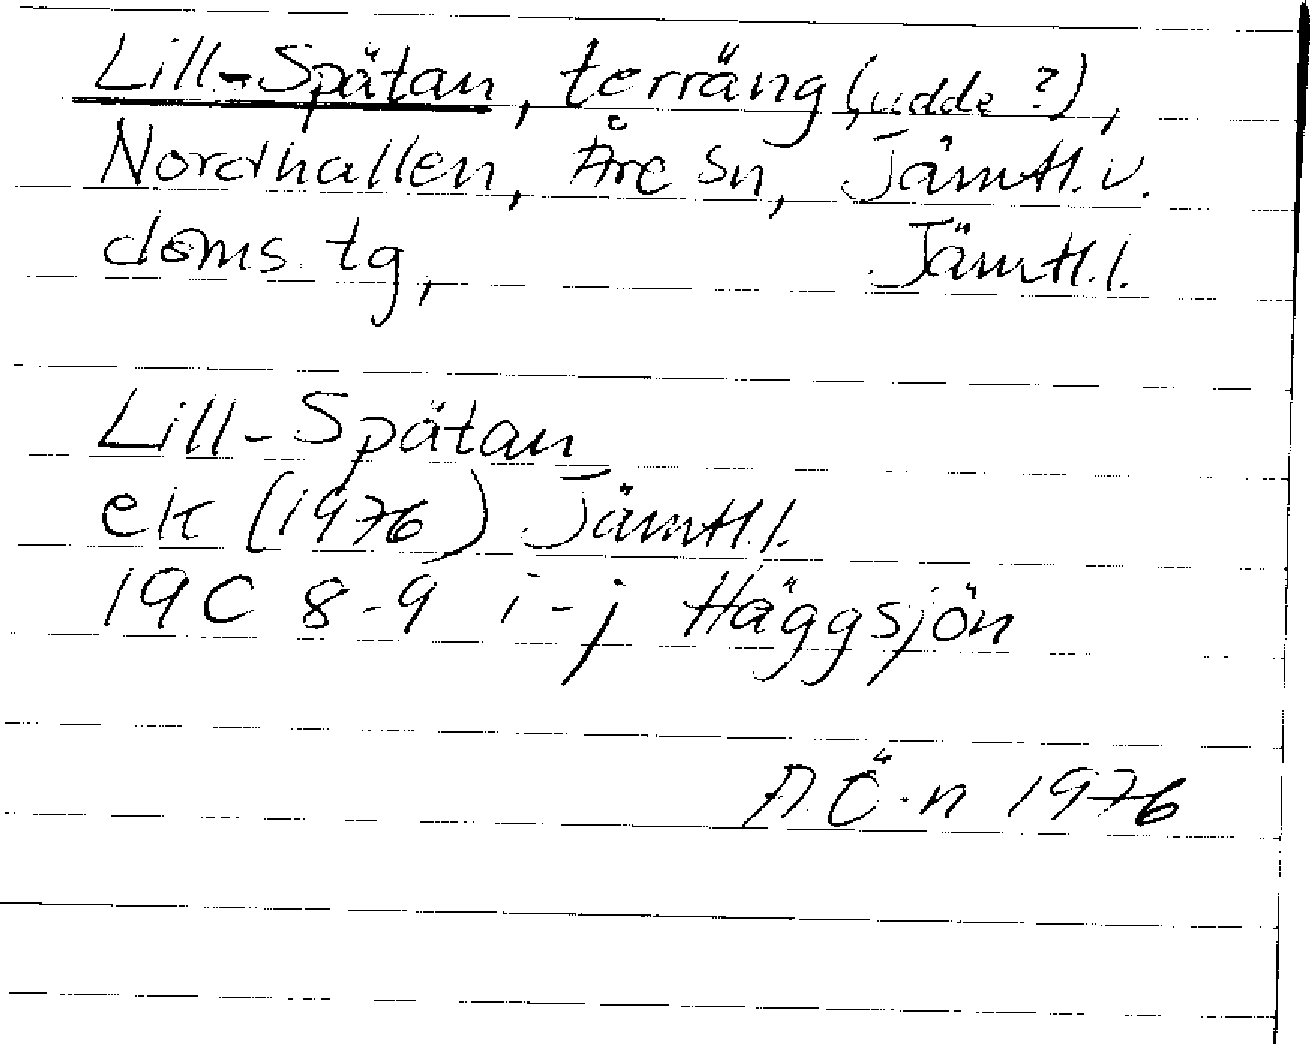 Lill-Spätan, terräng (udde ?),
Nordhallen, Åre sn, Jämtl. v.
doms. tg, Jämtl. l.
Lill-Spätan
ek (1976) Jämtl. l.
19C 8-9 i-j Häggsjön
A. Ö-n 1976